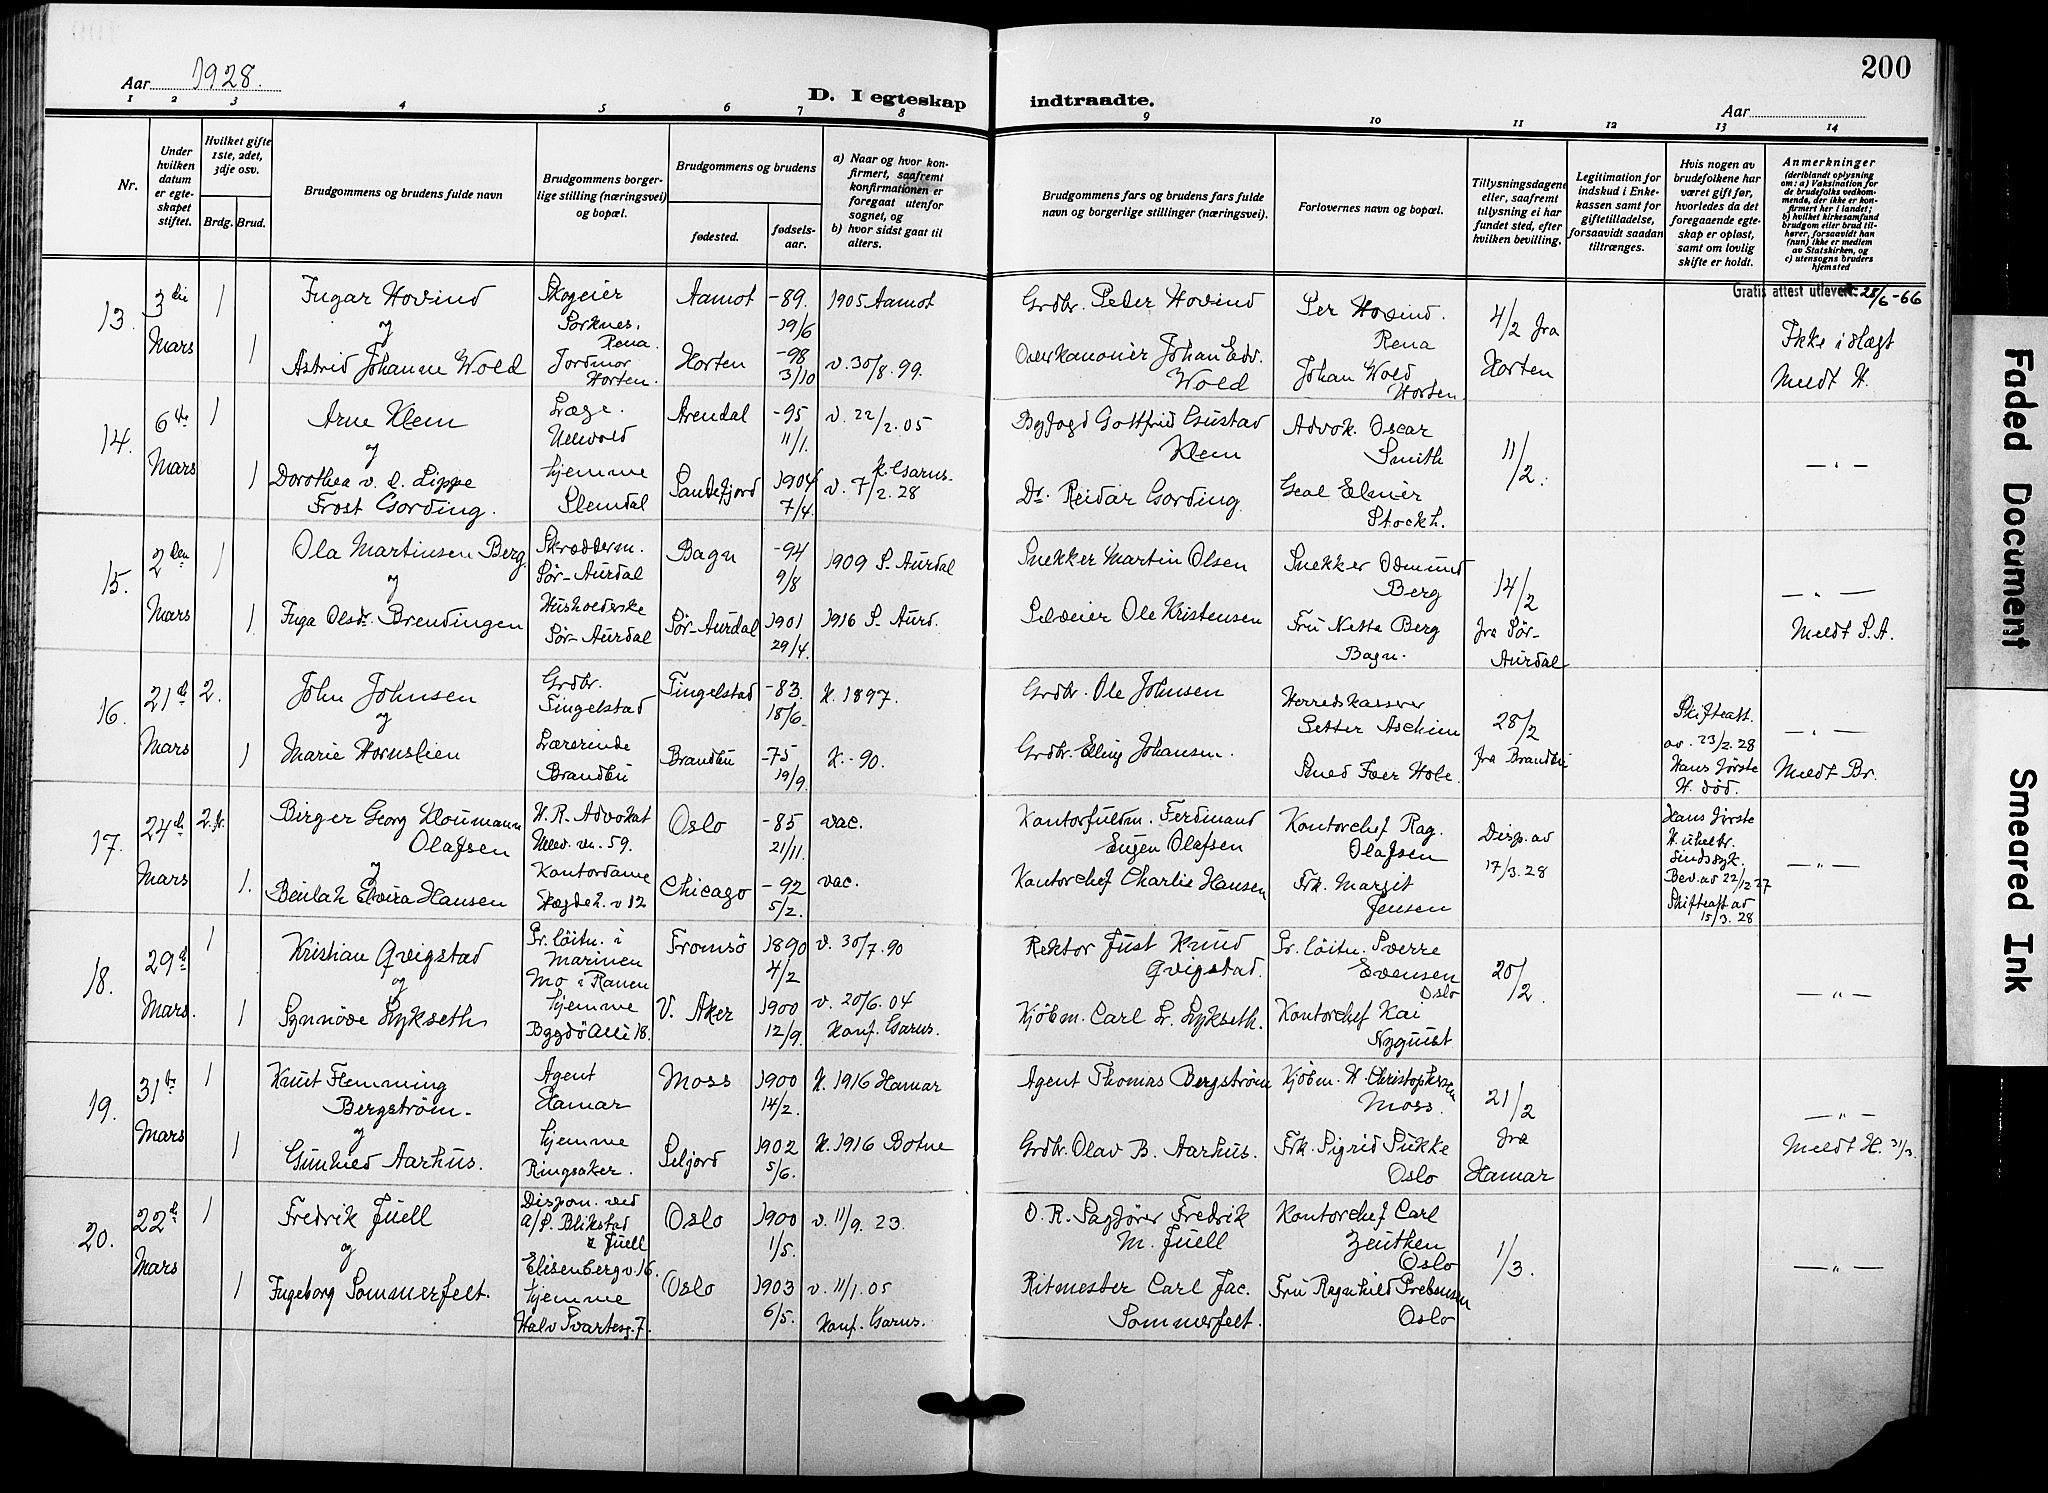 200
Aar 1928.
D. I egteskap indtraadte.
Aar
1 2 3 4 5 6 7 8 9 10 11 12 13 14
Nr.
Under hvilken datum er egteskapet stiftet.
Hvilket gifte 1ste, 2det, 3dje osv.
Brdg. Brud.
Brudgommens og brudens fulde navn
Brudgommens borgerlige stilling (næringsvei) og bopæl.
Brudgommens og brudens
fødested.
fødselsaar.
a) Naar og hvor konfirmert, saafremt konfirmationen er foregaat utenfor sognet, og
b) hvor sidst gaat til alters.
Brudgommens fars og brudens fars fulde navn og borgerlige stillinger (næringsvei).
Forlovernes navn og bopæl.
Tillysningsdagene eller, saafremt tillysning ei har fundet sted, efter hvilken bevilling.
Legitimation for indskud i Enkekassen samt for giftetilladelse, forsaavidt saadan tiltrænges.
Hvis nogen av brudefolkene har været gift før, hvorledes da det foregaaende egteskap er opløst, samt om lovlig skifte er holdt.
Anmerkninger (deriblandt oplysning om: a) Vaksination for de brudefolks vedkommende, der ikke er konfirmert her i landet; b) hvilket kirkesamfund brudgom eller brud tilhører, forsaavidt han (hun) ikke er medlem av Statskirken, og c) utensogns bruders hjemsted
Gratis attest utlevert 28/6-66
13. 3die Mars 1 Ingar Hovind Skogeier Sorknes, Rena. Aamot -89. 19/6 1905 Aamot Grdbr. Peder Hovind Per Hovind. Rena 4/2 fra Horten Ikke idlagt
og
1 Astrid Johanne Wold Jordmor Horten. Horten -98 3/10 v. 30/8. 99. Overkanonier Johan Edv. Wold Johan Wold Horten Meldt H.
14. 6te Mars 1 Arne Klem Læge. Ullevold Arendal -95 11/1. v. 22/2. 05 Byfogd Gottfrid Gustad Klem Advok. Oscar Smith 11/2. — " —
og
1 Dorothea v. d. Lippe Frost Gording. hjemme Slemdal Sandefjord 1904 7/4. v. 7/2. 28 k. Garns. Dr. Reidar Gording. Geol Elmer Stockh.
15. 2den Mars 1 Ola Martinsen Berg Skrædderm. Sør-Aurdal Bagn -94 9/8 1909 S. Aurdal Snekker Martin Olsen Snekker Odmund Berg 14/2 fra Sør-Aurdal — " —
og
1. Inga Olsdr. Brendingen Husholderske Sør-Aurdal Sør-Aurdal 1901 29/4. 1916 S. Aurd. Selveier Ole Kristensen Fru Netta Berg Bagn. Meldt S. A.
16. 21de Mars 2. John Johnsen Grdbr. Tingelstad Tingelstad -83. 18/6. K. 1897. Grdbr. Ole Johnsen Herredskasserer Petter Aschim 28/2 fra Brandbu Skifteatt. av. 23/2. 28 — " —
og
1 Marie Hornslien Lærerinde Brandbu Brandbu -75 19/9. K. -90. Grdbr. Elling Johansen. Smed Iver Hole. Hans første H. død. Meldt Br.
17. 24de Mars 2. fr. Birger Georg Kloumann Olafsen H. R. Advokat Ullev. vn. 59. Oslo -85 21/11. vac. Kontorfuldm. Ferdinand Eugen Olafsen Kontorchef Rag. Olafsen Disp. av 17/3. 28 Hans første H. uhelbr. sindssyk. Bev. av 22/12 27 Skifteatt. av 15/3. 28 — " —
og
1. Beulah Elvira Hansen Kontordame Skogdel. v 12 Chicago -92 5/2. vac. Kontorchef Charlie Hansen Frk. Margit Jensen
18. 29de Mars. 1 Kristian Qvigstad Pr. löitn. i Marinen Mo i Ranen Tromsö 1890 4/2 v. 30/7. 90 Rektor Just Knud Qvigstad. Pr. löitn. Sverre Evensen Oslo 20/2. — " —
og
1 Synnöve Lykseth hjemme Bygdö Alle 18. V. Aker 1900 12/9. v. 20/6. 04 Konf. Garns. Kjöbm. Carl Fr. Lykseth. Kontorchef Kai Nyquist
19. 31te Mars 1 Knut Flemming Bergström. Agent Hamar Moss 1900 14/2. K. 1916 Hamar Agent Thomas Bergström Kjöbm. H. Christophersen Moss. 21/2 fra Hamar — " —
og
1 Gunhild Aarhus. hjemme Ringsaker. Seljord 1902 5/6. K. 1916 Botne Grdbr. Olav B. Aarhus. Frk. Sigrid Sukke Oslo Meldt H. 31/3.
20. 22de Mars 1 Fredrik Juell Dispon. ved A/S. Blikstad & Juell Elisenberg v. 16. Oslo 1900 1/5. v. 11/9. 23. O. R. Sagförer Fredrik M. Juell Kontorchef Carl Zeuthen Oslo 1/3. — " —
og
1 Ingeborg Sommerfelt. hjemme Halv. Svartesg. 7. Oslo 1903 6/5. v. 11/1. 05 Konf. Garns. Ritmester Carl Jac. Sommerfelt. Fru Ragnhild Prebensen Oslo
Faded Document
Smeared Ink